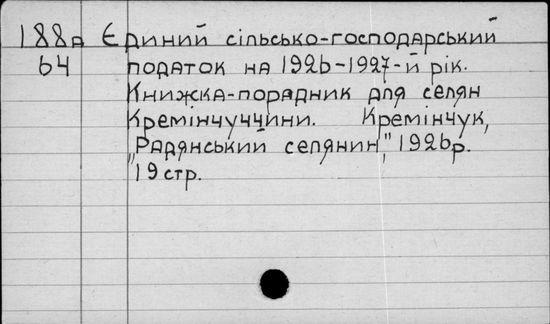 188д Єдиний сільсько-господарський
64 податок на 1926-1927-й рік.
Книжка-порадник для селян
Кремінчуччини. Кремінчук,
„Радянський селянин", 1926р.
19стр.